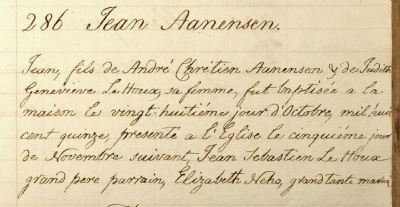 286 Jean Aanensen.
Jean, fils de André Chrétien Aanensen & de Judith
Genevieve Le Houx, sa femme, fut baptisée a la
maison le vingt-huitiéme jour d'Octobre, mil huit
cent quinze, presenté a l'Eglise le cinquiéme jour
de Novembre suivant, Jean Sebastien Le Houx
grand pere parrain, Elizabeth Neho, grandtante